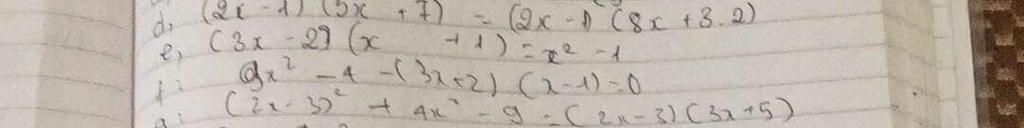 d, (2x - 1) (5x + 7) = (2x - 1) (8x + 3.2)
e, (3x - 2) (x + 1) = x² - 1
f: 9x² - 4 - (3x + 2) (x - 1) = 0
g: (2x - 3)² + 4x² - 9 = (2x - 3) (3x + 5)